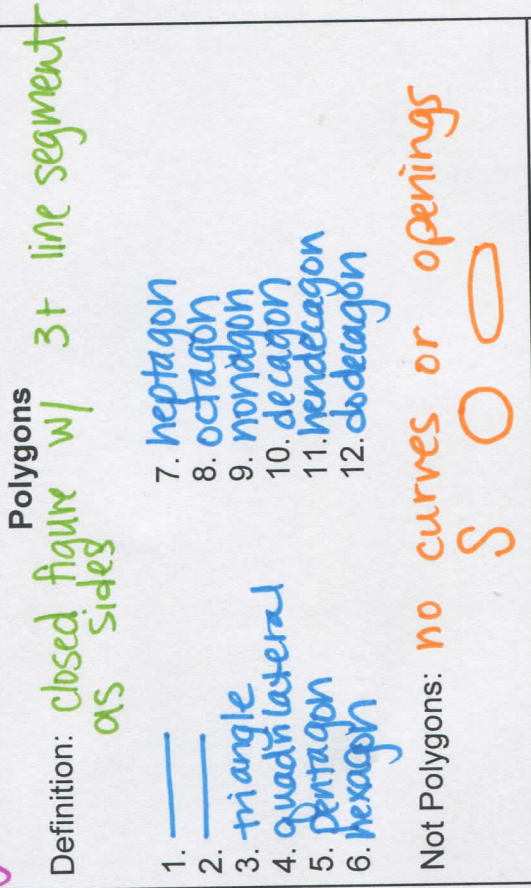 Polygons
Definition: closed figure w/ 3+ line segments
as sides
1.
2.
3. triangle
4. quadrilateral
5. pentagon
6. hexagon
7. heptagon
8. octagon
9. nonagon
10. decagon
11. hendecagon
12. dodecagon
Not Polygons: no curves or openings